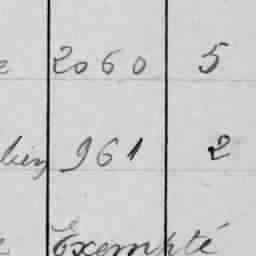 2060 5
961 2
Exempté